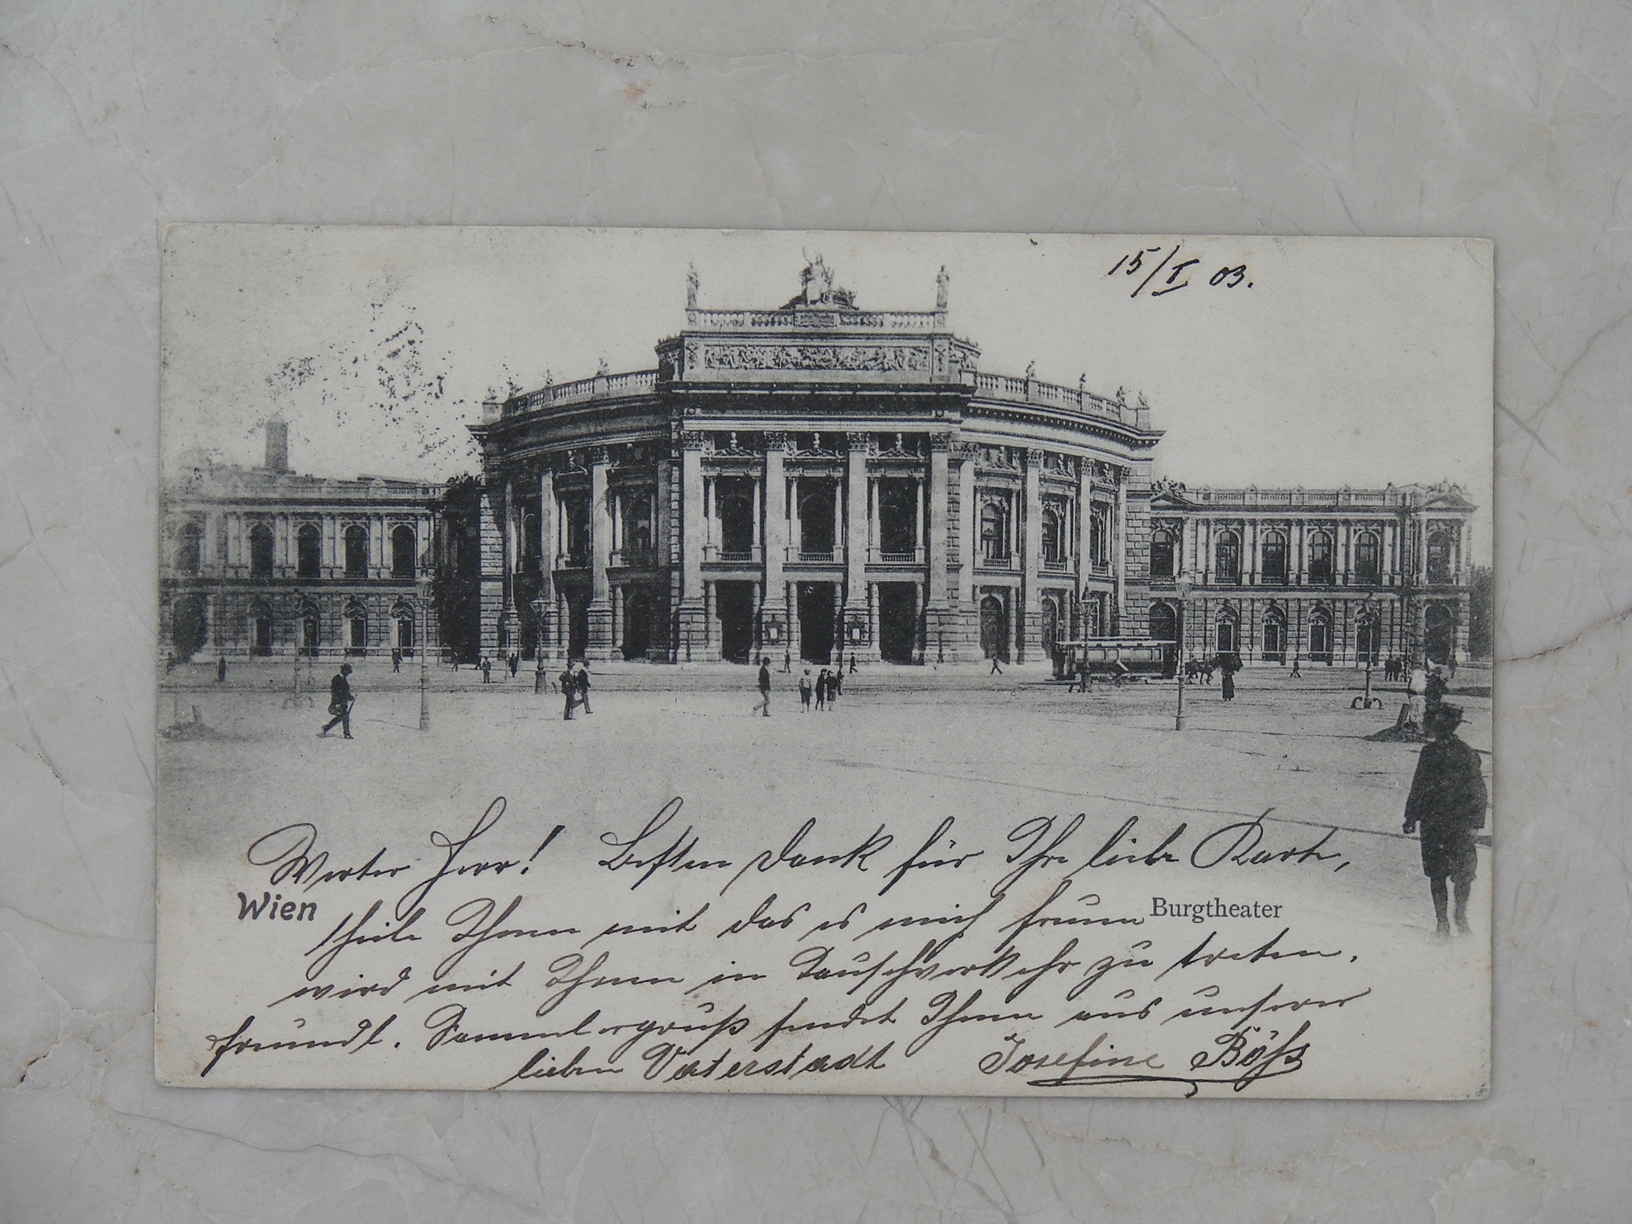 15/I 03.
Werter Herr! Besten Dank für Ihre liebe Karte,
Wien
theile Ihnen mit das es mich freuen
Burgtheater
wird mit Ihnen in Tauschverkehr zu treten.
freundl. Sammlergruß sendet Ihnen aus unserer
lieben Vaterstadt Josefine Böhs